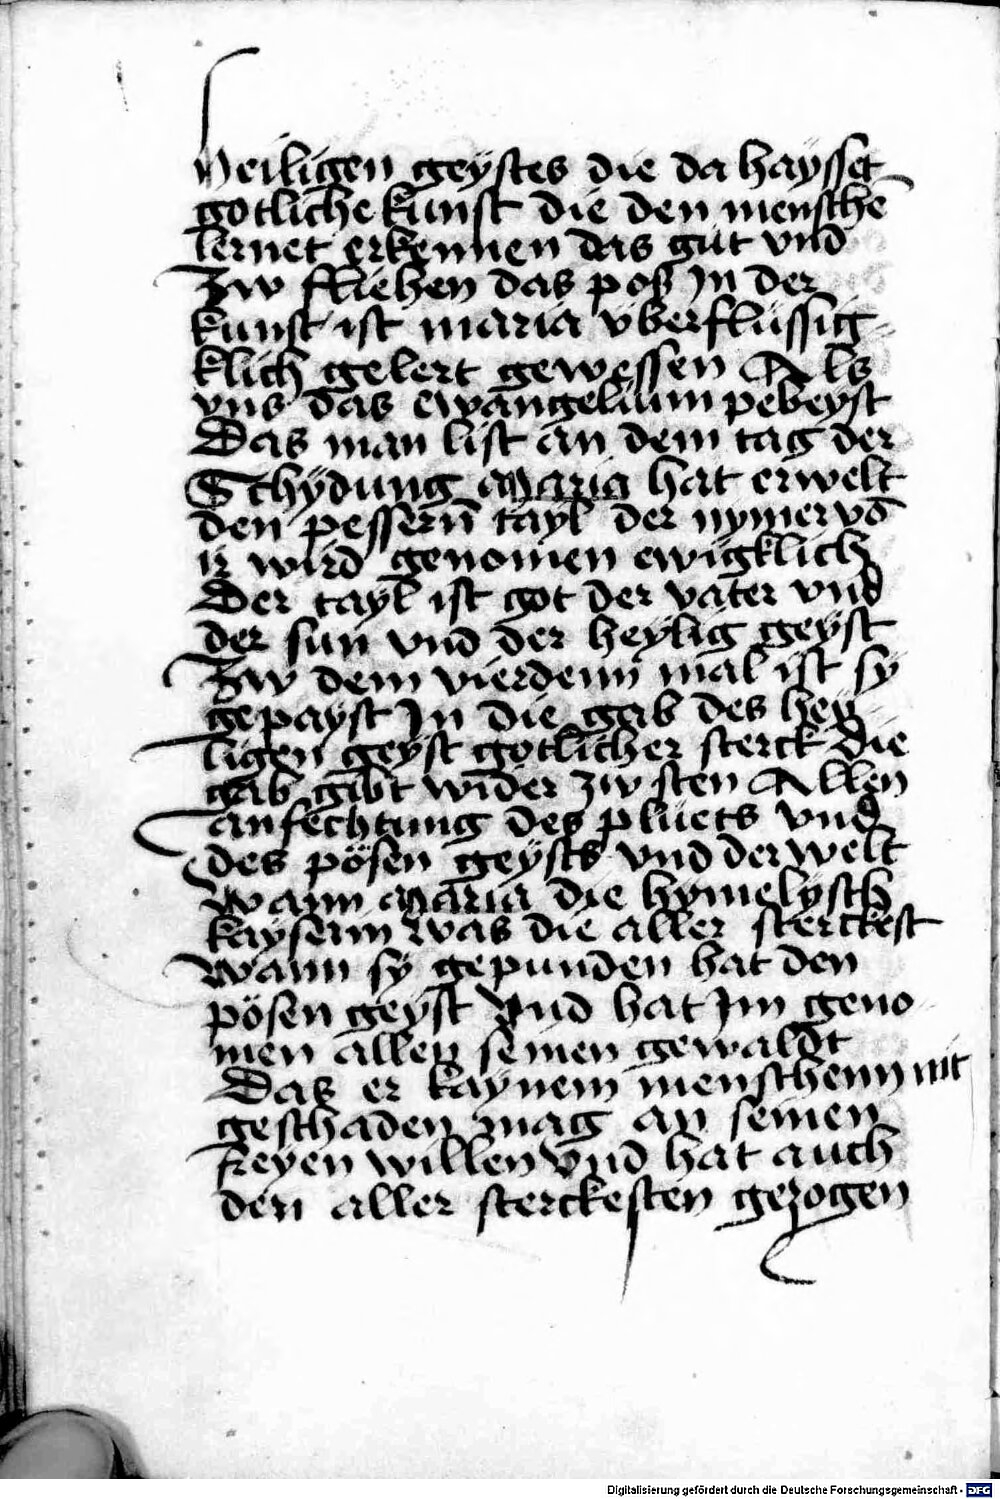 heiligen geÿstes die da haÿsset
gotliche kunst die den menschē
lernet erkennen das gut vnd
Zw fliehen das poß Jn der
kunst ist maria vberflüssig-
klich gelert gewessen Als
vns das ewangelium pebeyst
Das man list an dem tag der
Schÿdung Maria hat erwelt
den pessern̄ tayl der nymer vō
ir wird genomen ewigklich
Der taÿl ist got der vater vnd
der sun vnd der heylig geÿst
Zw dem vierdenn mal ist sÿ
gepayst Jn die gab des hey-
ligen geÿst gotlicher sterck die
gab gibt wider zw sten Allen
anfechtung des pluets vnd
des pösen geÿsts vnd der welt
Wann Maria die hymelÿsch
kaÿserin was die aller sterckest
Wann sÿ gepunden hat den
pösen geÿst Vnd hat Jm geno-
men allen seinen gewaldt
Das er kaÿnem menschenn nit
geschaden mag an seinen
freyen willen Vnd hat auch
den aller sterckesten gezogen
Digitalisierung gefördert durch die Deutsche Forschungsgemeinschaft - DFG